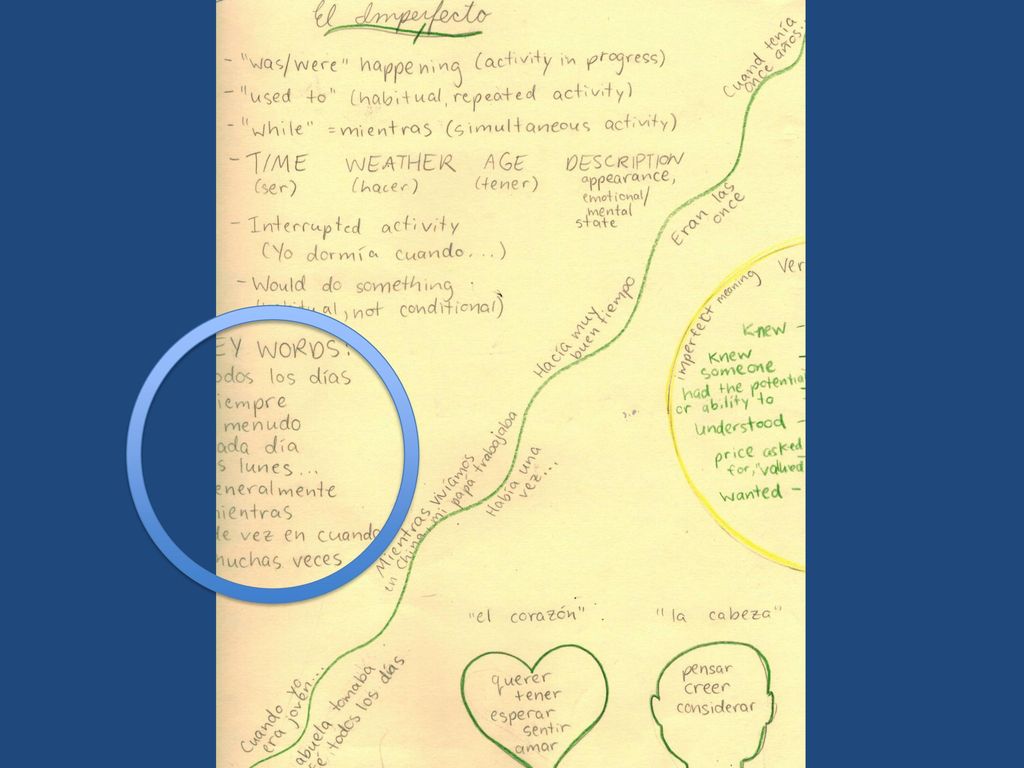 El Imperfecto
- "was/were" happening (activity in progress)
- "used to" (habitual, repeated activity)
- "while" = mientras (simultaneous activity)
- TIME WEATHER AGE DESCRIPTION
(ser) (hacer) (tener) appearance,
emotional/
mental
state
- Interrupted activity
(Yo dormía cuando...)
- Would do something :
, not conditional)
EY WORDS:
odos los días
iempre
menudo
ada día
s lunes...
eneralmente
ientras
de vez en cuando
muchas veces
Cuand tenía
once años...
Eran las
once
Hacía muy
buen tiempo
Había una
vez...
Mientras vivíamos
en China, mi papá trabajaba
Cuando yo
era joven...
abuela tomaba
fé todos los días
imperfect meaning
Ver
Knew -
Knew
someone
had the potentia
or ability to
understood -
price asked
for, "valued
wanted -
"el corazón"
querer
tener
esperar
sentir
amar
"la cabeza"
pensar
creer
considerar